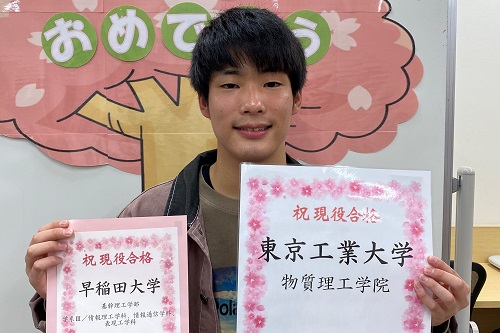 おめでとう
祝現役合格
早稲田大学
基幹理工学部
学系Ⅲ／情報理工学科、情報通信学科
表現工学科
祝現役合格
東京工業大学
物質理工学院